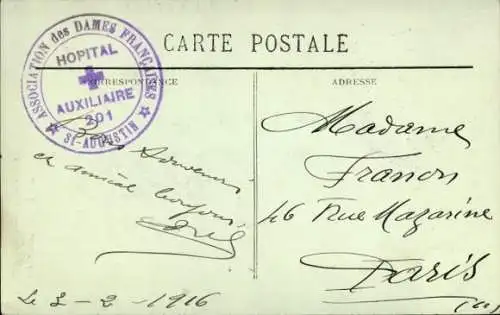 ASSOCIATION des DAMES FRANÇAISES
HOPITAL
AUXILIAIRE
201
St-AUGUSTIN
CARTE POSTALE
CORRESPONDANCE
ADRESSE
Bon Souvenir
et amical bonjour
Le 3-2-1916
Madame
Francon
46 Rue Mazarine
Paris